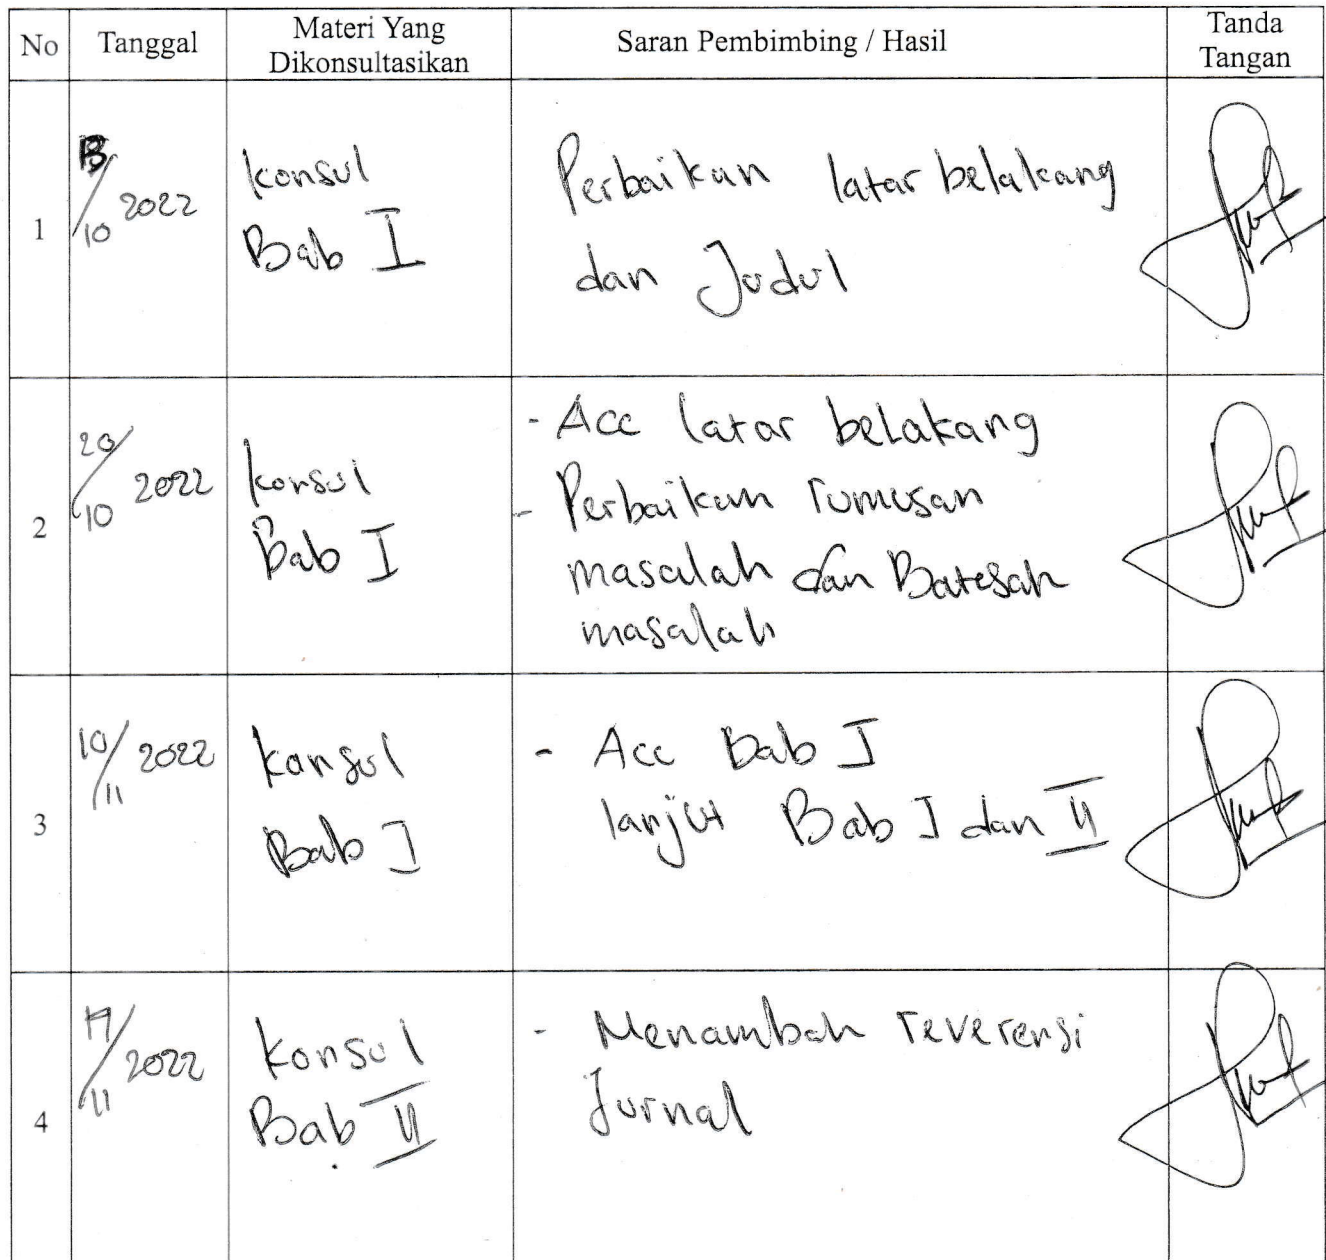 No Tanggal Materi Yang Dikonsultasikan Saran Pembimbing / Hasil Tanda Tangan
1 13/10 2022
konsul
Bab I
Perbaikan latar belakang
dan Judul
2 20/10 2022
konsul
Bab I
- Acc latar belakang
- Perbaikan rumusan
masalah dan Batasan
masalah
3 10/11 2022
konsul
Bab I
- Acc Bab I
lanjut Bab I dan II
4 17/11 2022
Konsul
Bab II
- Menambah reverensi
Jurnal